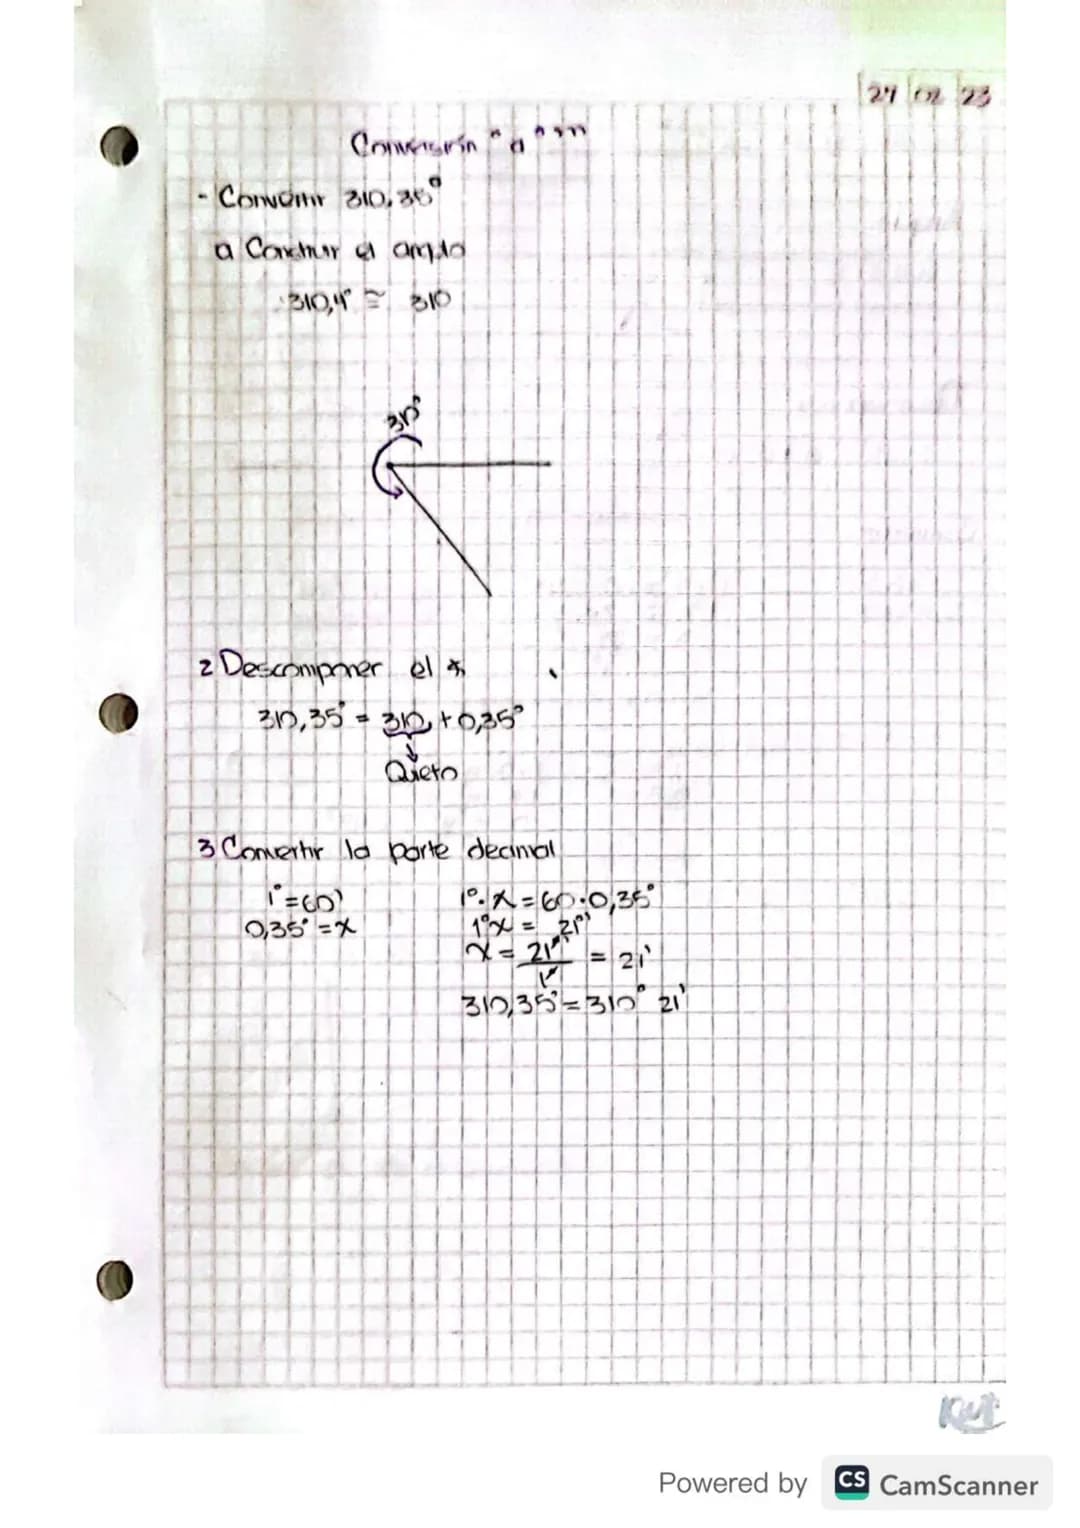 24 02 23
Conversión ° a ° ' "
- Convertir 310,35°
a Construir el angulo
310,4° ≅ 310
310°
2 Descomponer el ∡
310,35° = 310 + 0,35°
Quieto
3 Convertir la parte decimal
1° = 60'
0,35° = x
1°. x = 60 . 0,35°
1°x = 21°'
x = 21°' / 1° = 21'
310,35° = 310° 21'
Powered by CS CamScanner